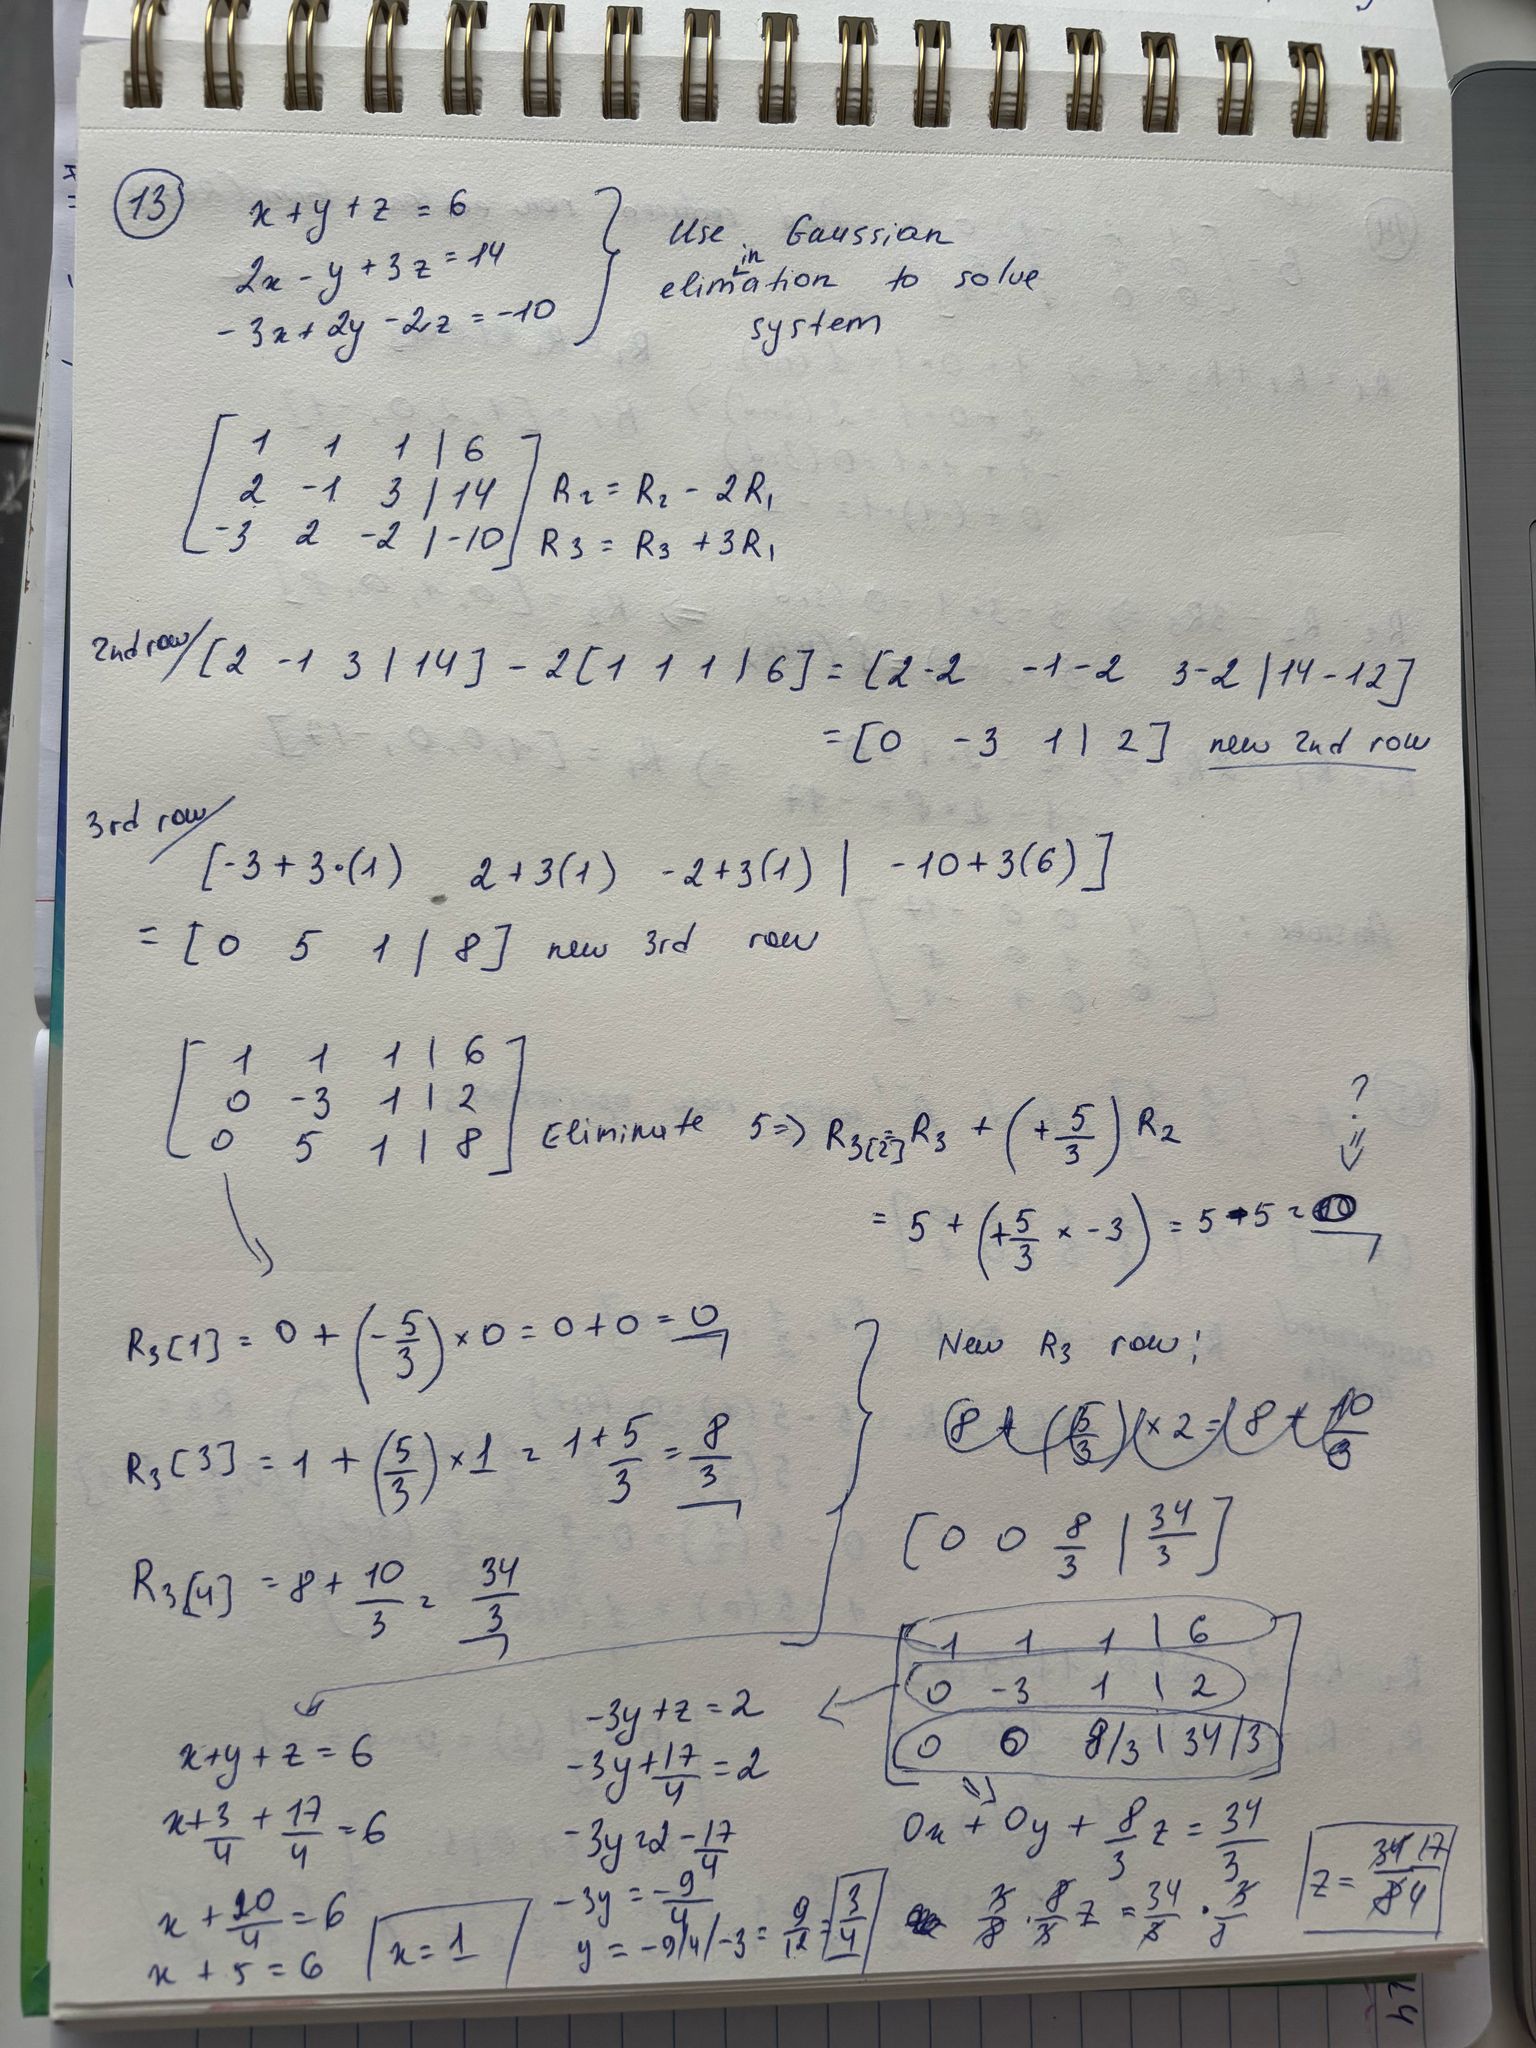 13
x + y + z = 6
2x - y + 3z = 14
-3x + 2y - 2z = -10
Use Gaussian
elimination to solve
system
[ 1 1 1 | 6 ]
[ 2 -1 3 | 14 ] R2 = R2 - 2R1
[ -3 2 -2 | -10 ] R3 = R3 + 3R1
2nd row/ [2 -1 3 | 14] - 2[1 1 1 | 6] = [2-2 -1-2 3-2 | 14-12]
= [0 -3 1 | 2] new 2nd row
3rd row/
[-3 + 3·(1) 2+3(1) -2+3(1) | -10+3(6)]
= [0 5 1 | 8] new 3rd row
[ 1 1 1 | 6 ]
[ 0 -3 1 | 2 ]
[ 0 5 1 | 8 ] Eliminate 5 => R3[2] = R3 + (+5/3) R2
?
= 5 + (+5/3 × -3) = 5 - 5 = 0
R3[1] = 0 + (-5/3) × 0 = 0 + 0 = 0
R3[3] = 1 + (5/3) × 1 = 1 + 5/3 = 8/3
R3[4] = 8 + 10/3 = 34/3
New R3 row:
8 + (5/3) × 2 = 8 + 10/3
[0 0 8/3 | 34/3]
[ 1 1 1 | 6 ]
[ 0 -3 1 | 2 ]
[ 0 0 8/3 | 34/3 ]
x + y + z = 6
x + 3/4 + 17/4 = 6
x + 20/4 = 6
x + 5 = 6
x = 1
-3y + z = 2
-3y + 17/4 = 2
-3y = 2 - 17/4
-3y = -9/4
y = -9/4/-3 = 9/12 = 3/4
0x + 0y + 8/3 z = 34/3
3/8 · 8/3 z = 34/3 · 3/8
z = 34 17/8 4